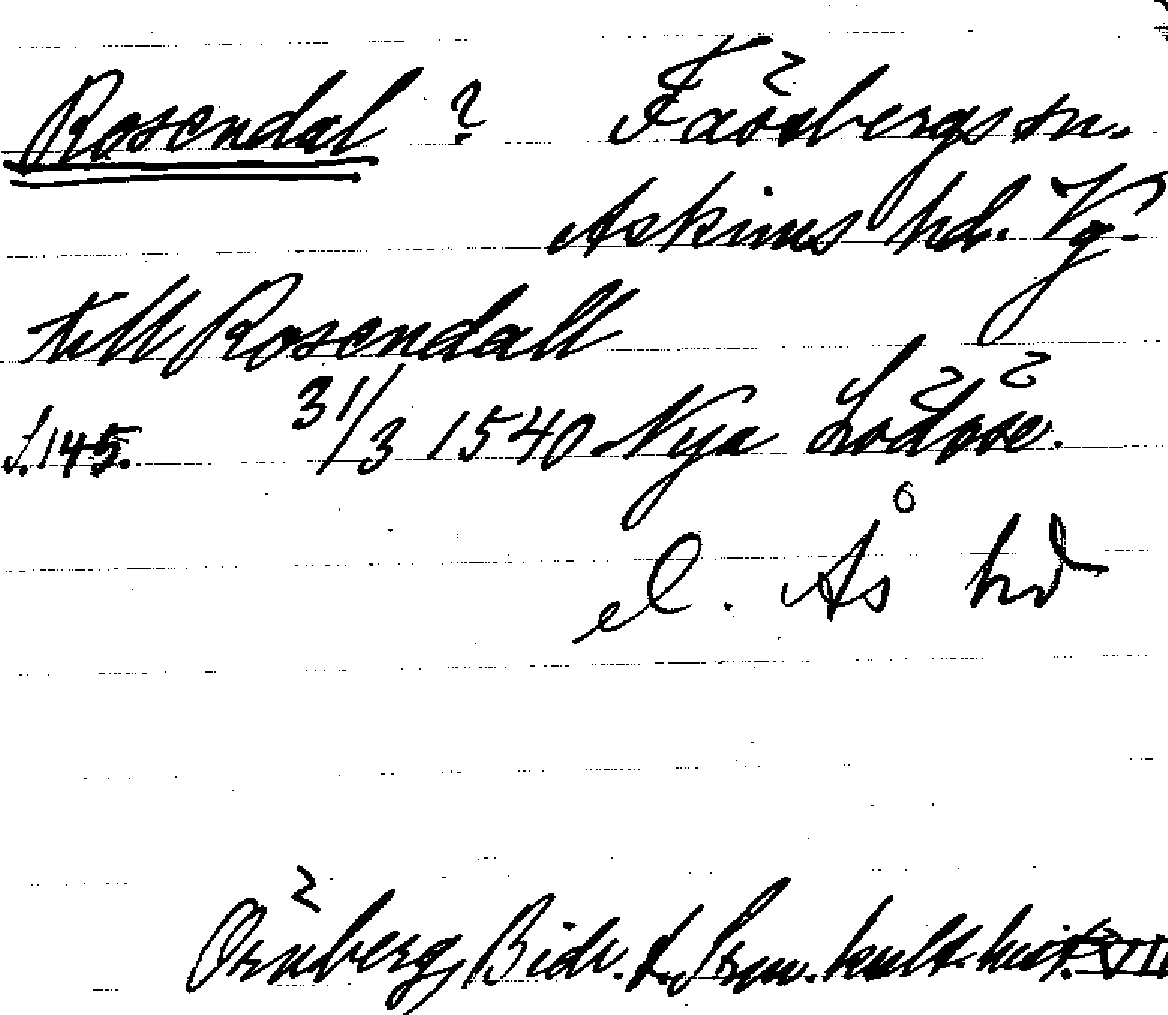 Rosendal ? Fässbergs sn.
Askims hd. Vg.
till Rosendall
s. 145. 31/3 1540 Nya Lödöse.
el. Ås hd
Örnberg, Bidr. t. Sv. kult. hist. VII